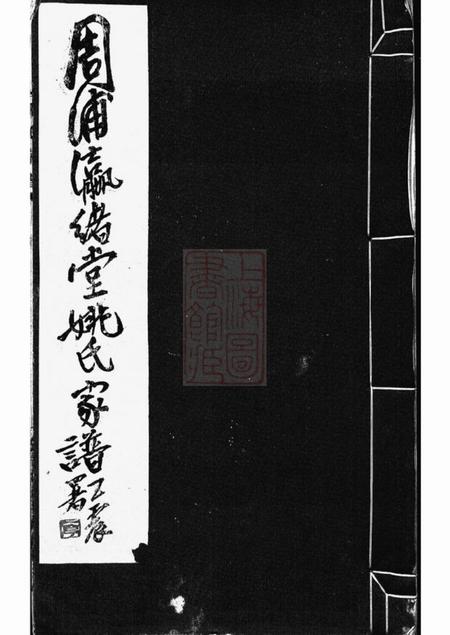 周浦瀛緒堂姚氏家譜
王震
署
上海圖
書館藏